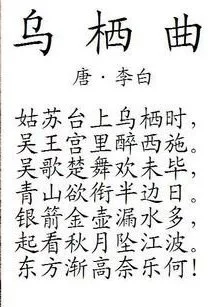 乌栖曲
唐·李白
姑苏台上乌栖时，
吴王宫里醉西施。
吴歌楚舞欢未毕，
青山欲衔半边日。
银箭金壶漏水多，
起看秋月坠江波。
东方渐高奈乐何！